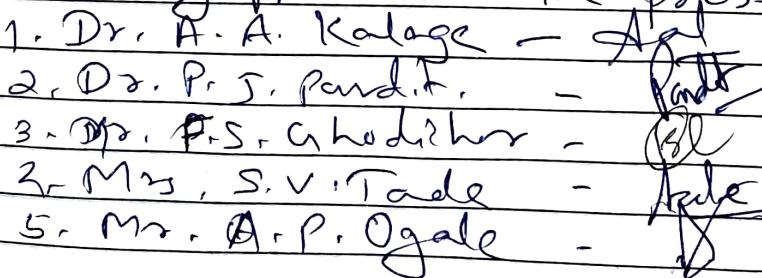 1. Dr. A. A. Kalage -
2. Dr. P. J. Pandit. -
3. Dr. P. S. Ghodichor -
4. Mrs. S. V. Tade - Tade
5. Mr. A. P. Ogale -